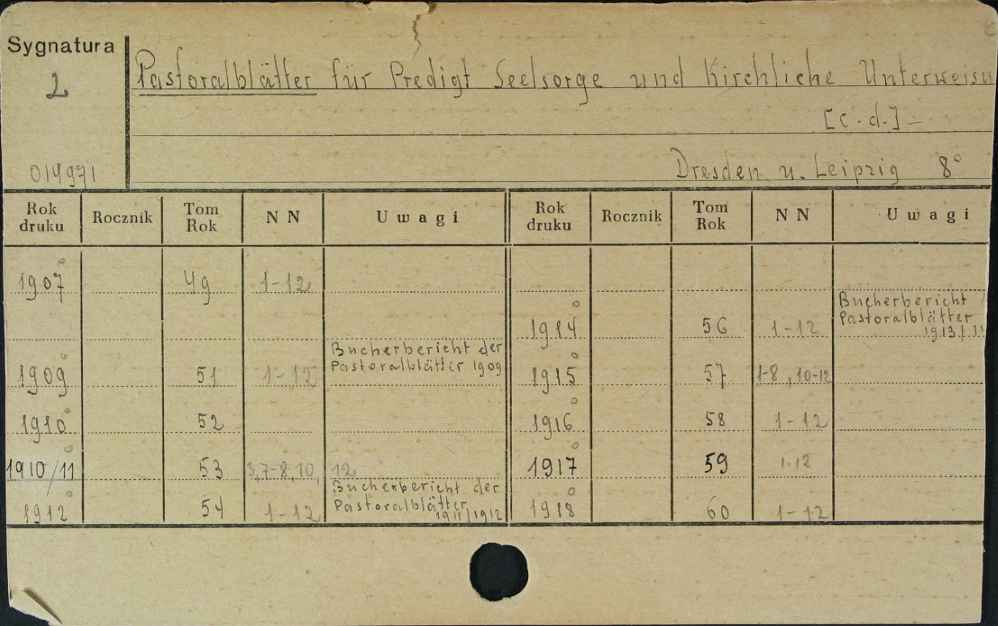 Sygnatura
2
Pastoralblätter für Predigt Seelsorge und Kirchliche Unterweisu
[c.d.] –
014971
Dresden u. Leipzig 8°
Rok druku Rocznik Tom Rok N N Uwagi Rok druku Rocznik Tom Rok N N Uwagi
1907 49 1-12
Bucherbericht
Pastoralblätter
1914 56 1-12 1913/.
Bucherbericht der
Pastoralblätter 1909
1909 51 1-12 1915 57 1-8, 10-12
1910 52 1916 58 1-12
1910/11 53 3,7-8,10, 12 1917 59 1-12
Bucherbericht der
Pastoralblätter
1911/1912
1912 54 1-12 1918 60 1-12